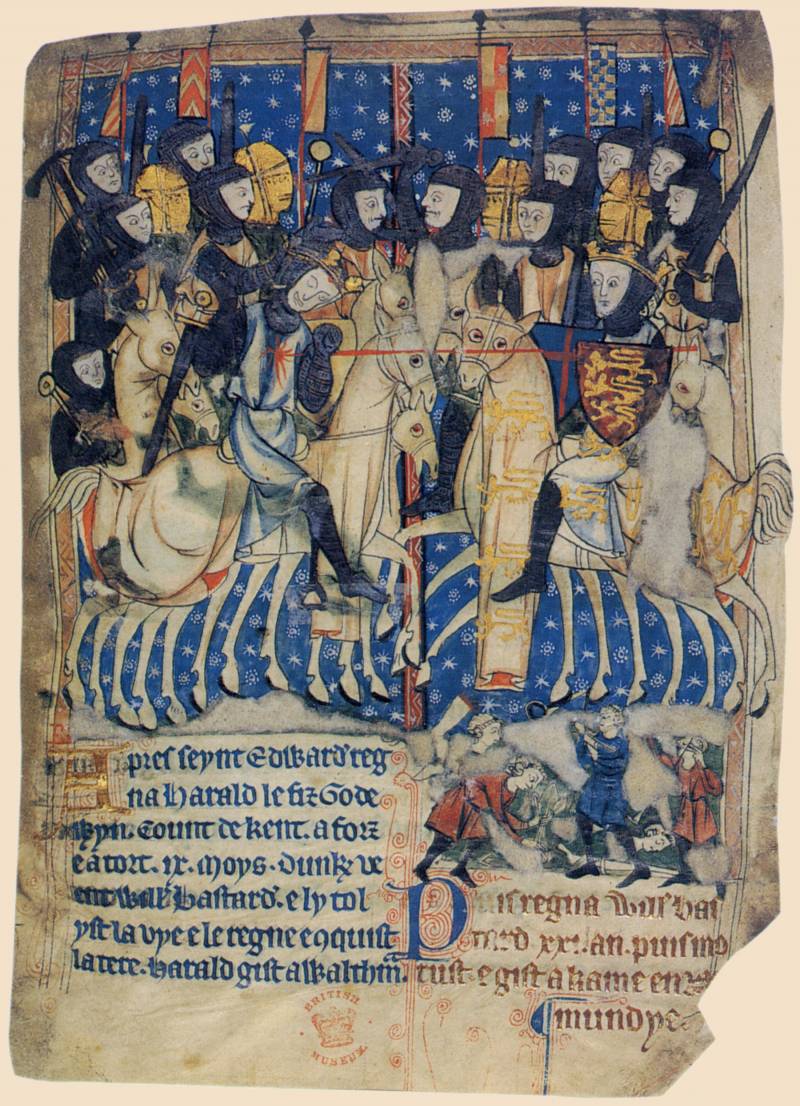 pres seynt Edward reg
na Harald le fiz Gode
wyn. Count de kent. a forz
e a tort. ix. Moys. Dunk ve
ent Will bastard. e ly tol
yst la vye e le regne e conquist
la tere. Harald gist a Walthm.
Puis regna Will bas
tard xxi. an. puis mo
rust. e gist a kame en
mundye
BRITISH MUSEUM